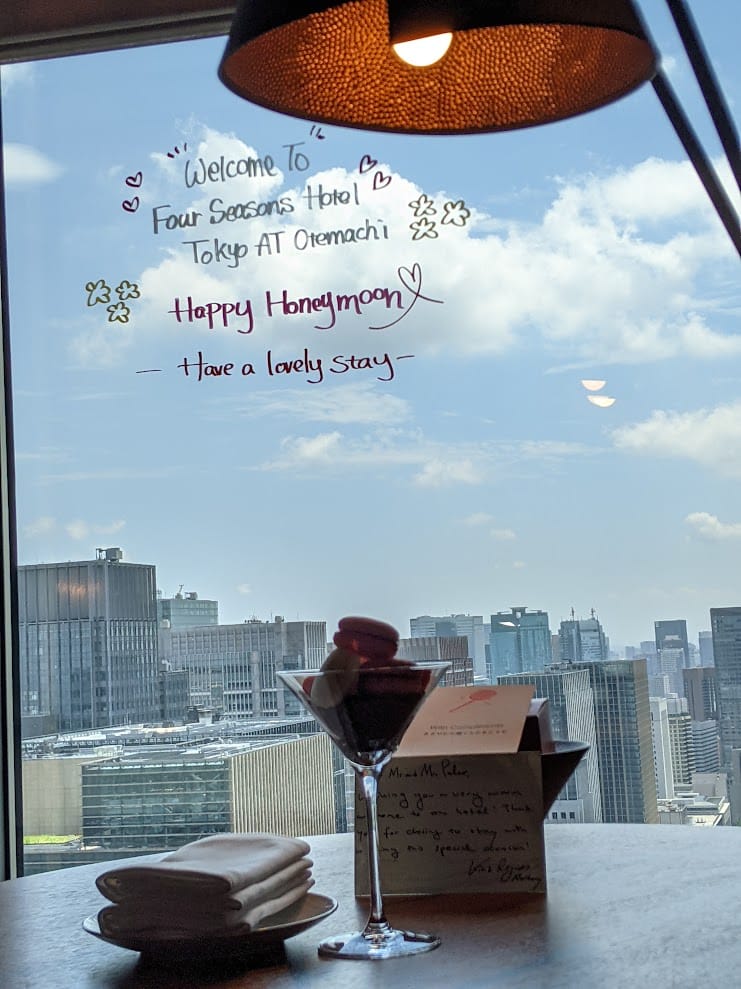 Welcome To
Four Seasons Hotel
Tokyo AT Otemachi
Happy Honeymoon
- Have a lovely stay -
With Compliments
Mr. and Mr.
you a very warm
to our hotel! Thank
for choosing to stay with
special occasion!
Kind Regards